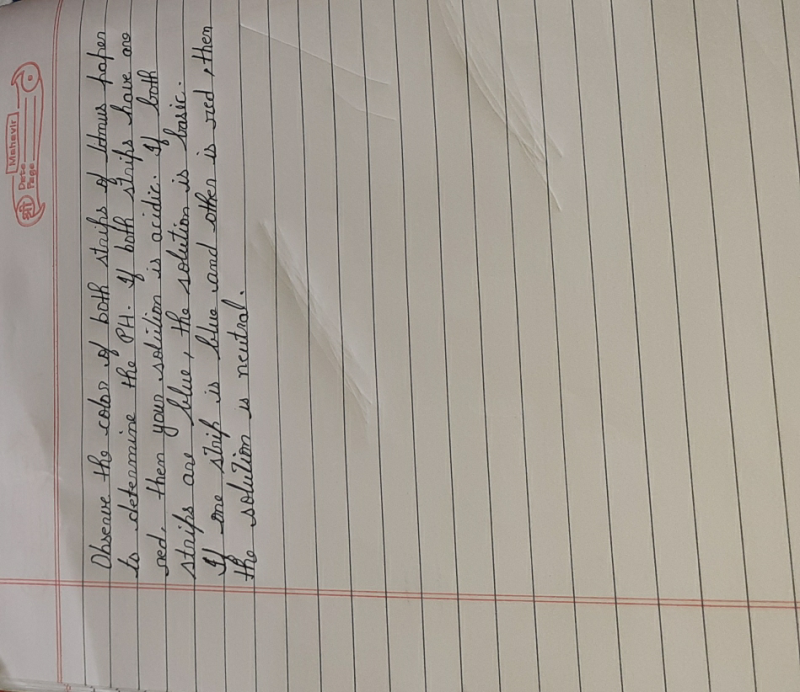 श्री
Mahavir
Date
Page
Observe the color of both strips of litmus paper
to determine the PH. If both strips have are
red, then your solution is acidic. If both
strips are blue, the solution is basic.
If one strip is blue and other is red, then
the solution is neutral.